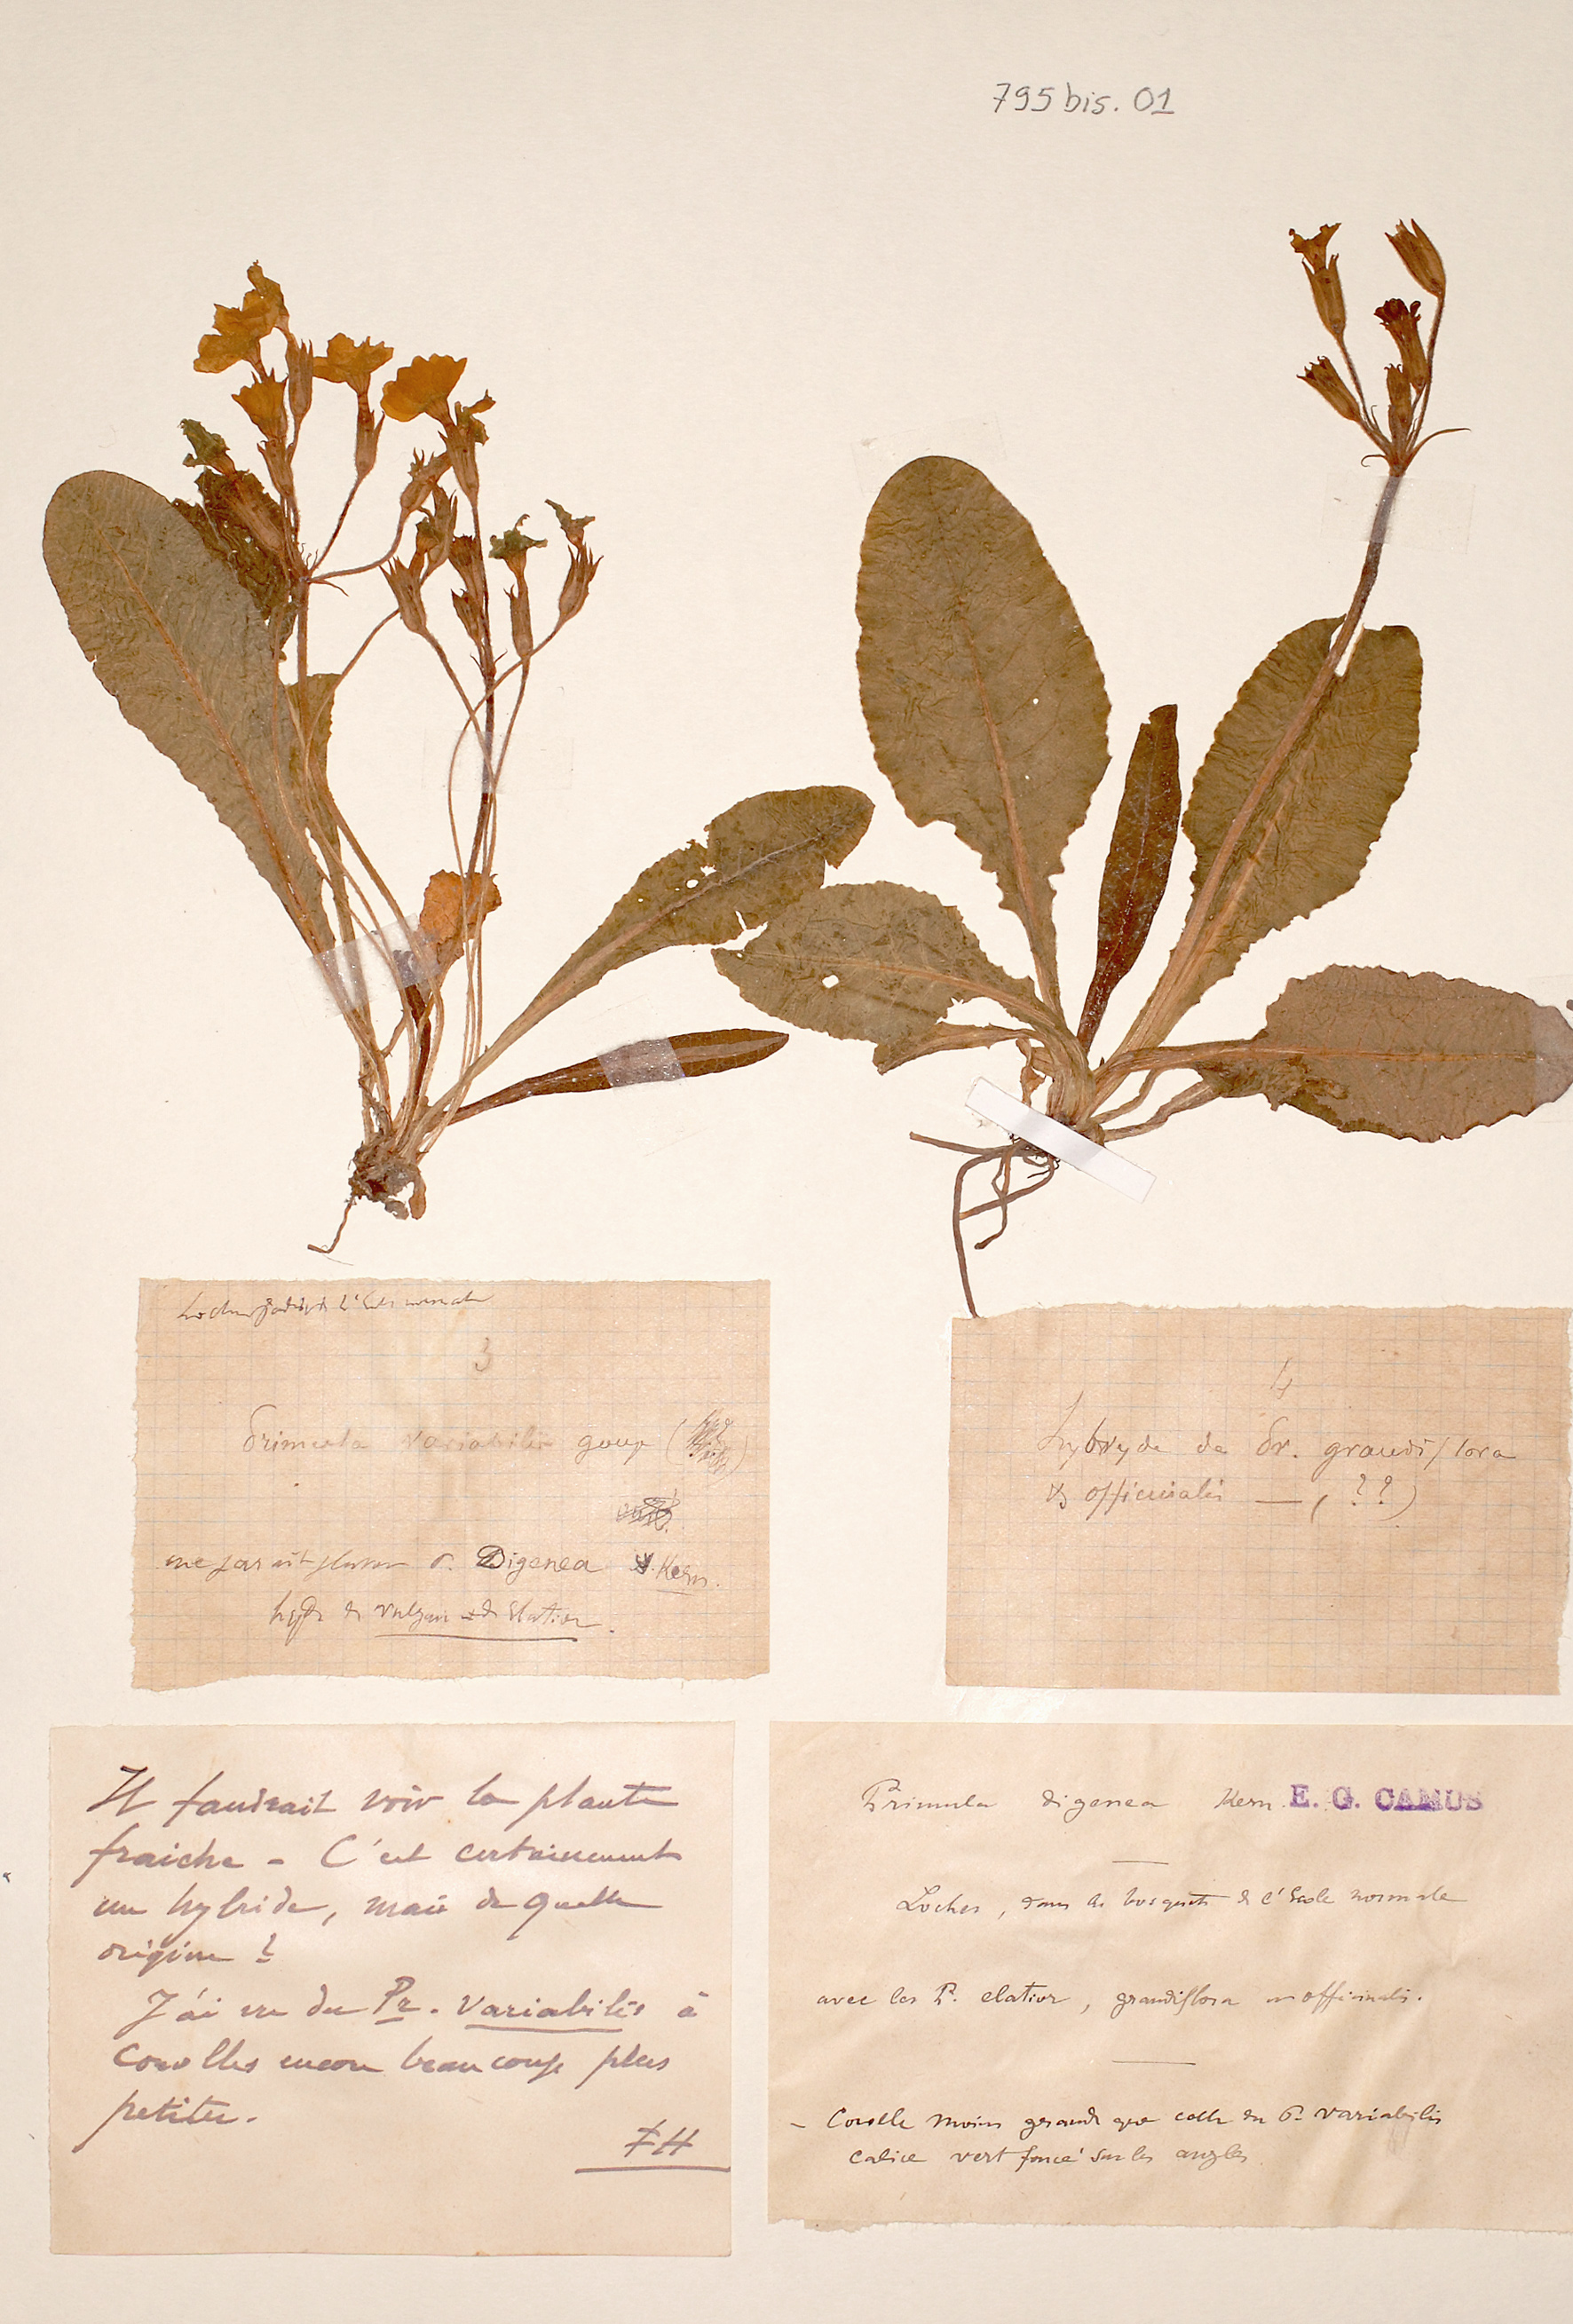 795 bis. 01
Loches, jardin de l'Ecole normale
3
Primula variabilis goup (
me parait plutot P. Digenea Kern.
hyb. de vulgaris et de Elatior.
4
hybryde de Pr. grandiflora
& officinalis — (??)
Il faudrait voir la plante
fraiche - C'est certainement
un hybride, mais de quelle
origine ?
J'ai vu du Pr. variabilis à
corolles encore beaucoup plus
petites.
FH
Primula digenea Kern. E. G. CAMUS
Loches, dans les bosquets de l'Ecole normale
avec les P. elatior, grandiflora officinalis.
- Corolle moins grande que celle du P. variabilis
calice vert foncé sur les angles.